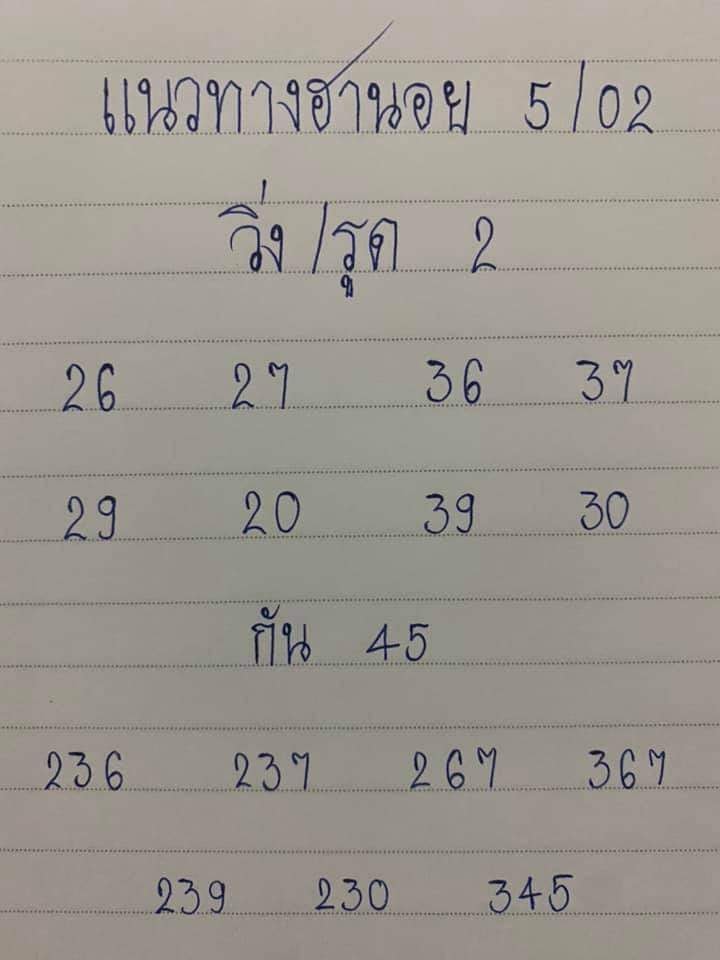 แนวทางฮานอย 5/02
วิ่ง/รูด 2
26 27 36 37
29 20 39 30
กัน 45
236 237 267 367
239 230 345